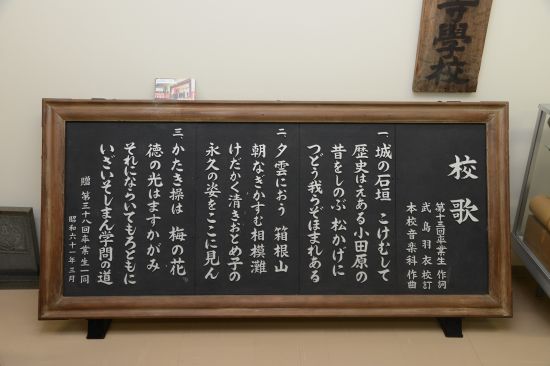 校歌
第十三回卒業生 作詞
武島羽衣 校訂
本校音楽科 作曲
一、城の石垣 こけむして
歴史はえある小田原の
昔をしのぶ 松かげに
つどう我らぞほまれある
二、夕雲におう 箱根山
朝なぎかすむ 相模灘
けだかく清きおとめ子の
永久の姿をここに見ん
三、かたき操は 梅の花
徳の光はますかがみ
それにならいてもろともに
いざいそしまん学問の道
贈 第三十八回卒業生一同
昭和六十一年三月
學校